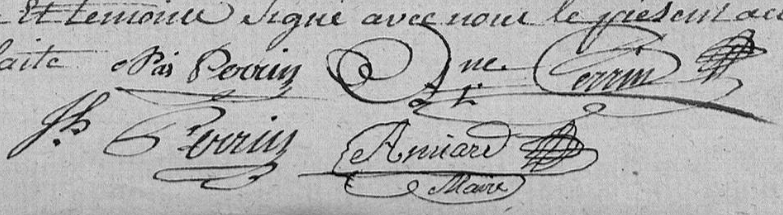 Et temoins Signé avec nous le présent ac
faite Pas Perrin ne Perrin
Jh Perrin Amiard
Maire